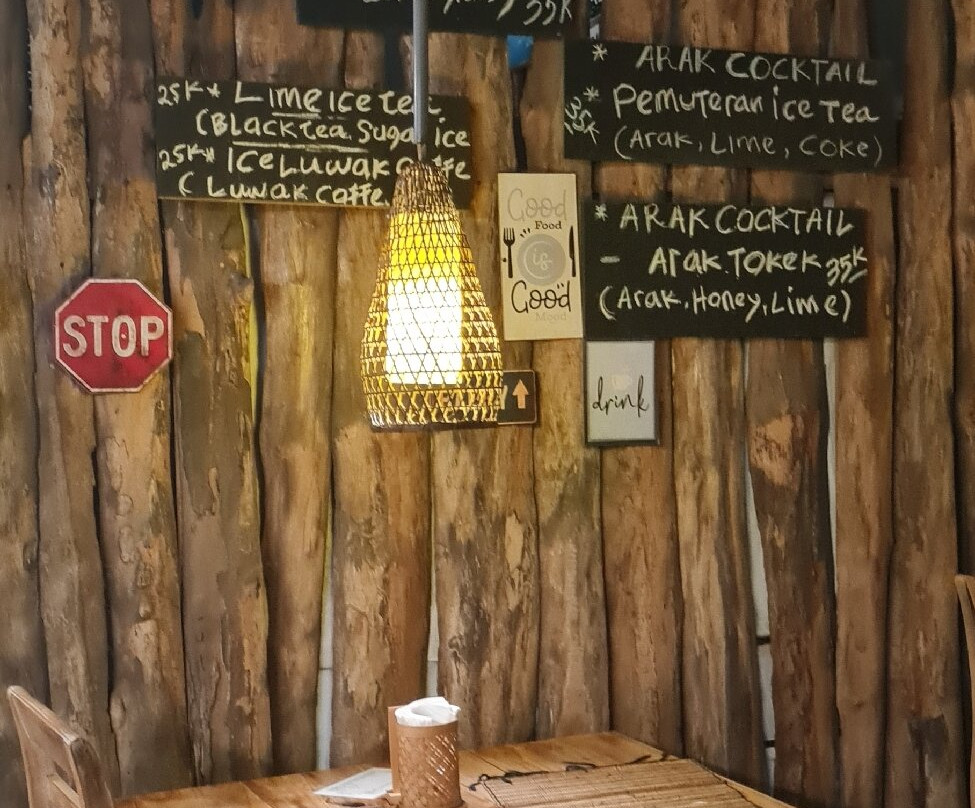 35K
25K* Lime Ice tea
(Black tea. Sugar ice
25K* Ice Luwak Coffe
(Luwak Coffe
* ARAK COCKTAIL
35K * Pemuteran ice Tea
(Arak, Lime, Coke)
Good
Food
is
Good
Mood
* ARAK COCKTAIL
- Arak.TOKEK 35K
(Arak,Honey,Lime)
STOP
drink